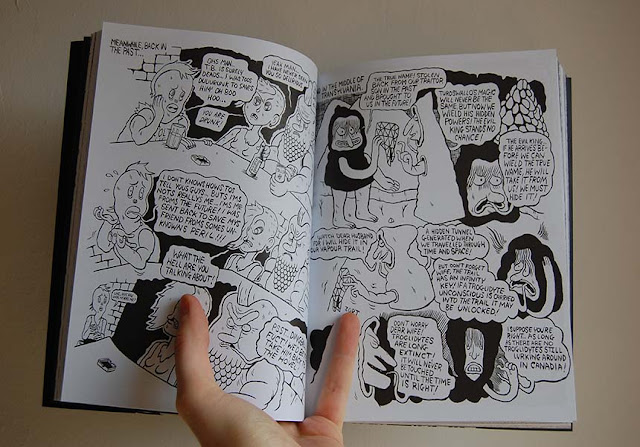 MEANWHILE, BACK IN
THE PAST...
OHS MAN,
T.B. IS SURELY
DEADS... I WAS TOOS
DRUNK TO SAVE
HIM! OH BOO
HOO...
YEAH MAN,
I HAVE NEVER SEEN
YOU SO DELIRIOUS!
YOU ARE
DRUNK!
I DON'T KNOWS HOWS TOS
TELL YOUS GUYS... IT'S I'MS
NOTS REALLYS ME... I'MS ME
FROMS THE FUTURE!! I WAS
SENT BACK TO SAVE MY
FRIEND FROM SOMES UN-
KNOWNS PERIL!!!
WHAT THE
HELL ARE YOU
TALKING ABOUT!
IN THE MIDDLE OF
TRANSYLVANIA.
THE TRUE NAME! STOLEN
BACK FROM OUR TRAITOR
SON IN THE PAST
AND BROUGHT TO
US IN THE FUTURE!
TURDSWALLO'S MAGIC
WILL NEVER BE THE
SAME, BUT NOW WE
WIELD HIS HIDDEN
POWERS! THE EVIL
KING STANDS NO
CHANCE!
THE EVIL KING...
IF HE ARRIVES BE-
FORE WE CAN
WIELD THE TRUE
NAME, HE WILL
TAKE IT FROM
US! WE MUST
HIDE IT!
WATCH DEAR HUSBAND
FOR I WILL HIDE IT IN
OUR VAPOUR TRAIL!
A HIDDEN TUNNEL
GENERATED WHEN
WE TRAVELLED THROUGH
TIME AND SPACE!
BUT DON'T FORGET
WIFE, THE TRAIL
HAS AN INFINITY
KEY! IF A TROGLIDYTE
UNCONSCIOUS IS CARRIED
INTO THE TRAIL IT MAY
BE UNLOCKED!
DON'T WORRY
DEAR WIFE!
TROGLIDYTES
ARE LONG
EXTINCT!
IT WILL NEVER
BE TOUCHED
UNTIL THE TIME
IS RIGHT!
I SUPPOSE YOU'RE
RIGHT. AS LONG
AS THERE ARE NO
TROGLIDYTES STILL
LURKING AROUND
IN CANADIA!